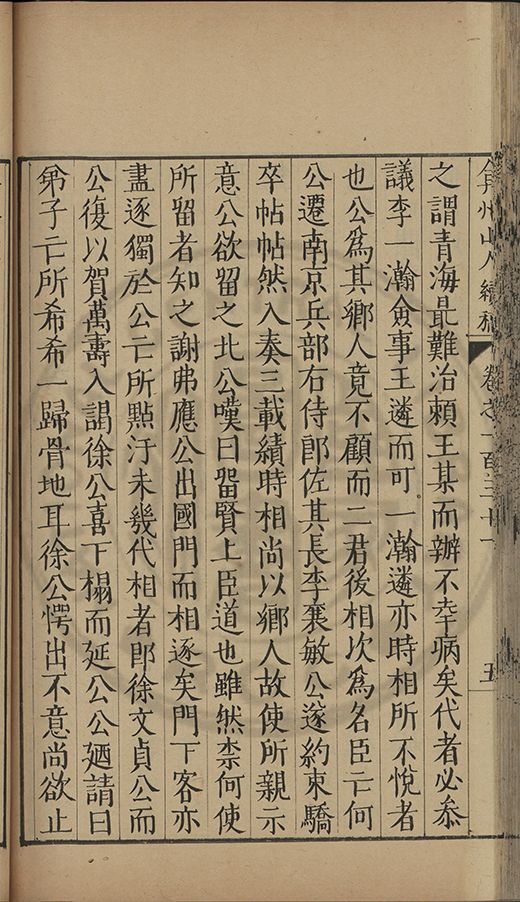 弇州山人續稿 卷之一百三十一 五
之謂青海最難治賴王某而辦不幸病矣代者必叅
議李一瀚僉事王遴而可一瀚遴亦時相所不悅者
也公爲其鄉人竟不顧而二君後相次爲名臣亡何
公遷南京兵部右侍郎佐其長李襄敏公遂約束驕
卒帖帖然入奏三載績時相尚以鄉人故使所親示
意公欲留之北公嘆曰留賢上臣道也雖然柰何使
所留者知之謝弗應公出國門而相逐矣門下客亦
盡逐獨於公亡所點汙未幾代相者卽徐文貞公而
公復以賀萬壽入謁徐公喜下榻而延公公廼請曰
弟子亡所希希一歸骨地耳徐公愕出不意尚欲止